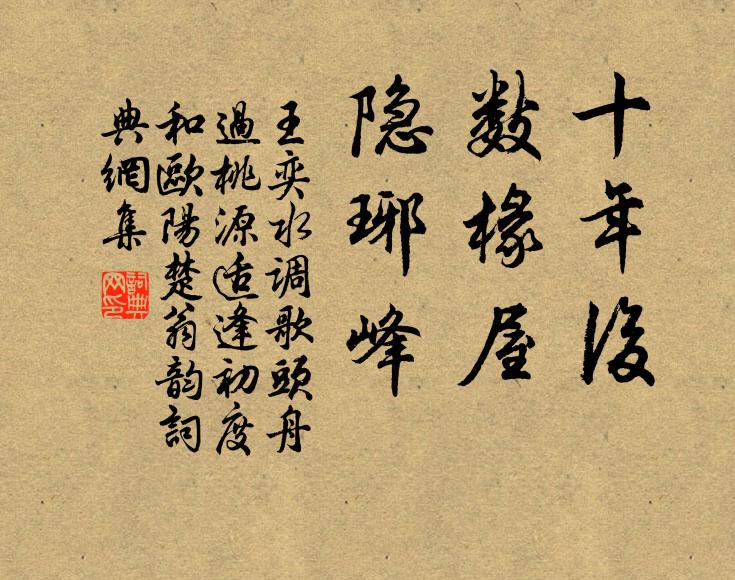 十年後
数椽屋
隐琊峰
王奕水調歌頭舟
過桃源适逢初度
和歐陽楚翁韵詞
典網集
詞典网印